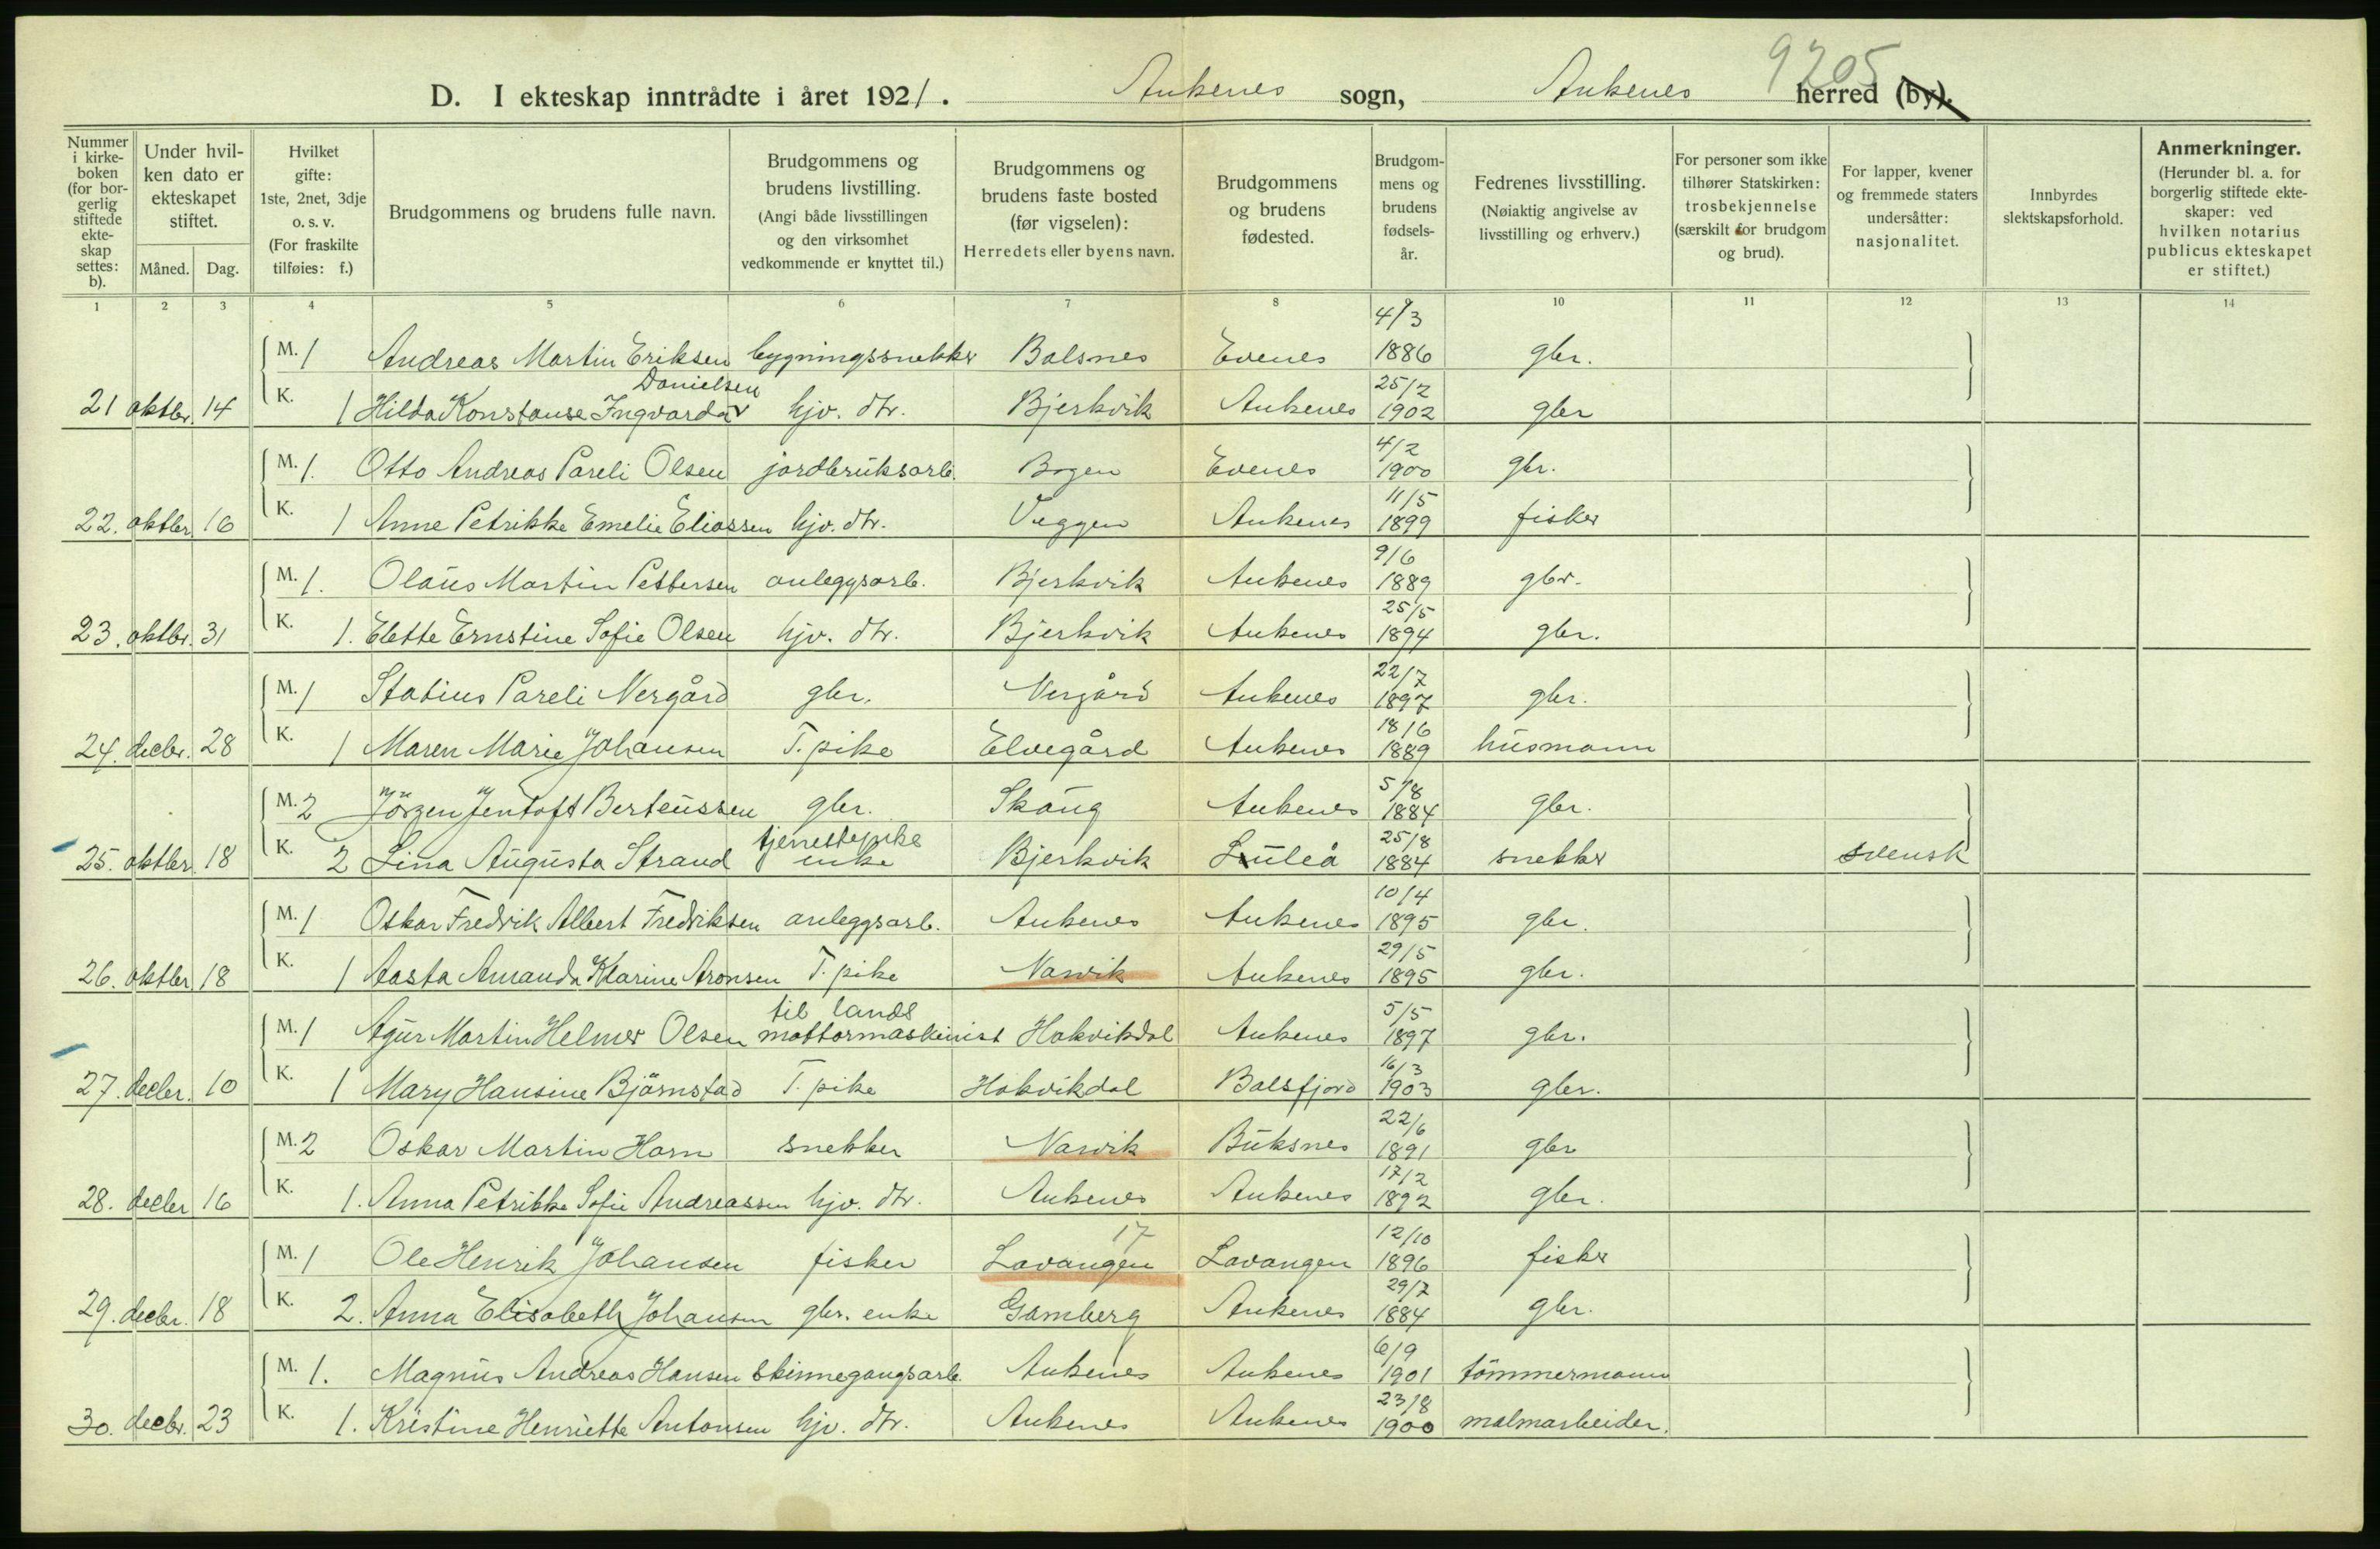 9205
D. I ekteskap inntrådte i året 1921. Ankenes sogn, Ankenes herred (by).
Nummer i kirkeboken (for borgerlig stiftede ekteskap settes: b).
Under hvilken dato er ekteskapet stiftet.
Måned. Dag.
Hvilket gifte: 1ste, 2net, 3dje o. s. v. (For fraskilte tilføies: f.)
Brudgommens og brudens fulle navn.
Brudgommens og brudens livstilling. (Angi både livsstillingen og den virksomhet vedkommende er knyttet til.)
Brudgommens og brudens faste bosted (før vigselen): Herredets eller byens navn.
Brudgommens og brudens fødested.
Brudgommens og brudens fødselsår.
Fedrenes livsstilling. (Nøiaktig angivelse av livsstilling og erhverv.)
For personer som ikke tilhører Statskirken: trosbekjennelse (særskilt for brudgom og brud).
For lapper, kvener og fremmede staters undersåtter: nasjonalitet.
Innbyrdes slektskapsforhold.
Anmerkninger. (Herunder bl. a. for borgerlig stiftede ekteskaper: ved hvilken notarius publicus ekteskapet er stiftet.)
1 2 3 4 5 6 7 8 9 10 11 12 13 14
M. 1 Andreas Martin Eriksen bygningssnekker Balsnes Evenes 4/3 1886 gbr.
Danielsen
21 oktbr. 14 K. 1 Hilda Konstanse Ingvarda hjv. dtr. Bjerkvik Ankenes 25/2 1902 gbr
M. 1. Otto Andreas Pareli Olsen jordbruksarb. Bogen Evenes 4/2 1900 gbr.
22. oktbr. 16 K. 1 Anne Petrikke Emelie Eliassen hjv. dtr. Veggen Ankenes 11/5 1899 fisker
M. 1. Olaus Martin Pettersen anleggsarb. Bjerkvik Ankenes 9/6 1889 gbr.
23. oktbr. 31 K. 1. Elette Ernstine Sofie Olsen hjv. dtr. Bjerkvik Ankenes 25/5 1894 gbr.
M. 1 Statius Pareli Nergård gbr. Nergård Ankenes 22/7 1897 gbr.
24. decbr. 28 K. 1 Maren Marie Johansen T. pike Elvegård Ankenes 18/6 1889 husmann
M. 2 Jörgen Jentoft Berteussen gbr. Skaug Ankenes 5/8 1884 gbr.
tjenestepike
25. oktbr. 18 K. 2 Lina Augusta Strand enke Bjerkvik Luleå 25/8 1884 snekker svensk
M. 1 Oskar Fredrik Albert Fredriksen anleggsarb. Ankenes Ankenes 10/4 1895 gbr.
26. oktbr. 18 K. 1 Aasta Amanda Klarine Aronsen T. pike Narvik Ankenes 29/5 1895 gbr.
til lands
M. 1 Agur Martin Helmer Olsen mottormaskinist Hakvikdal Ankenes 5/5 1897 gbr.
27. decbr. 10 K. 1 Mary Hansine Björnstad T. pike Hakvikdal Balsfjord 16/3 1903 gbr.
M. 2 Oskar Martin Horn snekker Narvik Buksnes 22/6 1891 gbr
28. decbr 16 K. 1. Anna Petrikke Sofie Andreassen hjv. dtr. Ankenes Ankenes 17/2 1892 gbr.
17
M. 1 Ole Henrik Johansen fisker Lavangen Lavangen 12/10 1896 fisker
29. decbr. 18 K. 2. Anna Elisabeth Johansen gbr. enke Gamberg Ankenes 29/7 1884 gbr.
M. 1. Magnus Andreas Hansen skinnegangsarb. Ankenes Ankenes 6/9 1901 tömmermann
30. decbr. 23 K. 1. Kristine Henriette Antonsen hjv. dtr. Ankenes Ankenes 23/8 1900 malmarbeider.